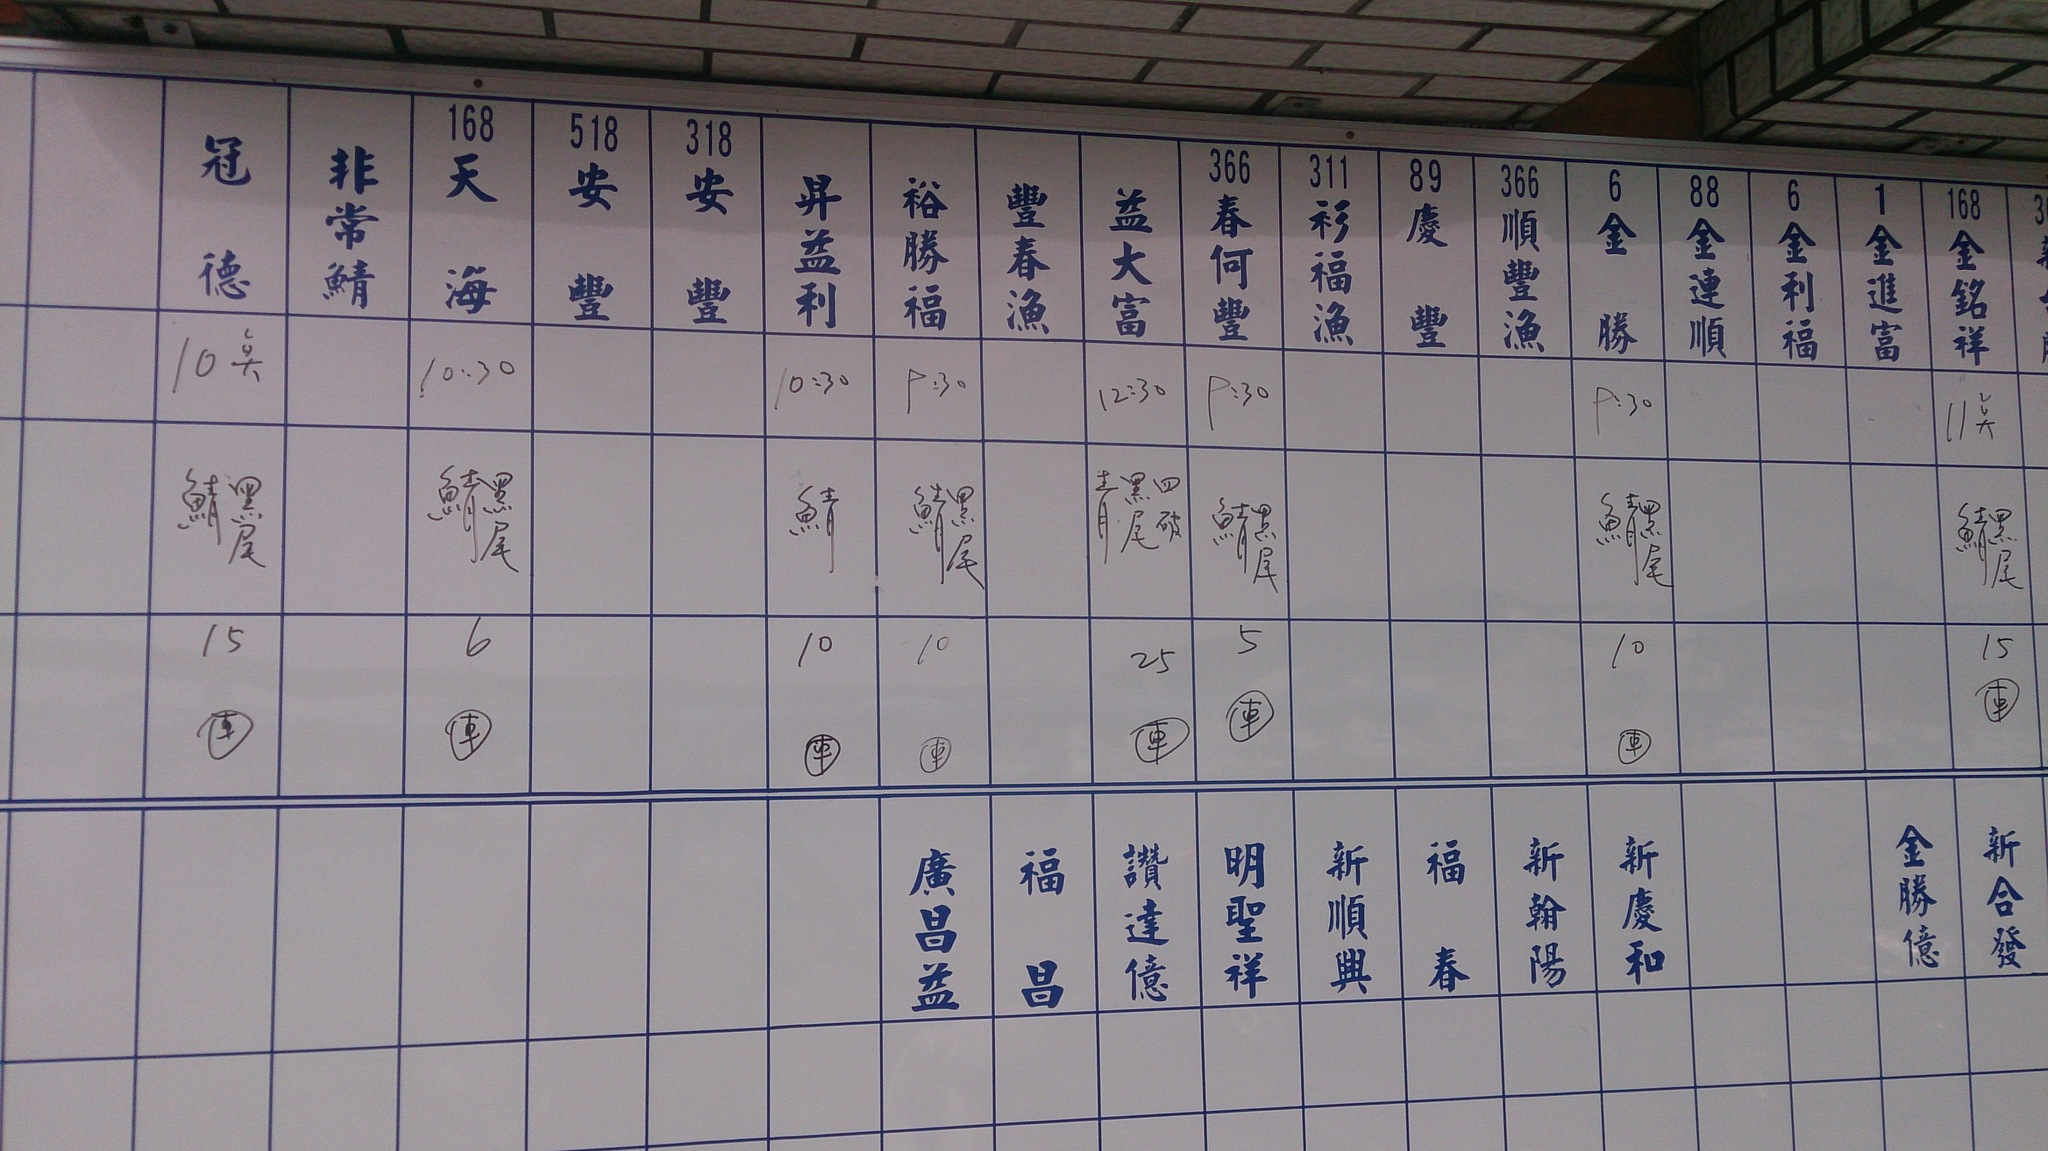 冠德
10
鯖
黑尾
15
車
非常鯖
168
天海
10:30
鯖
黑尾
6
車
518
安豐
318
安豐
昇益利
10:30
鯖
10
車
裕勝福
9:30
鯖
黑尾
10
車
豐春漁
益大富
12:30
四破
黑尾
青
25
車
366
春何豐
9:30
鯖
黑尾
5
車
311
彩福漁
89
慶豐
366
順豐漁
6
金勝
9:30
鯖
黑尾
10
車
88
金連順
6
金利福
1
金進富
168
金銘祥
11
鯖
黑尾
15
車
廣昌益
福昌
讚達億
明聖祥
新順興
福春
新翰陽
新慶和
金勝億
新合發